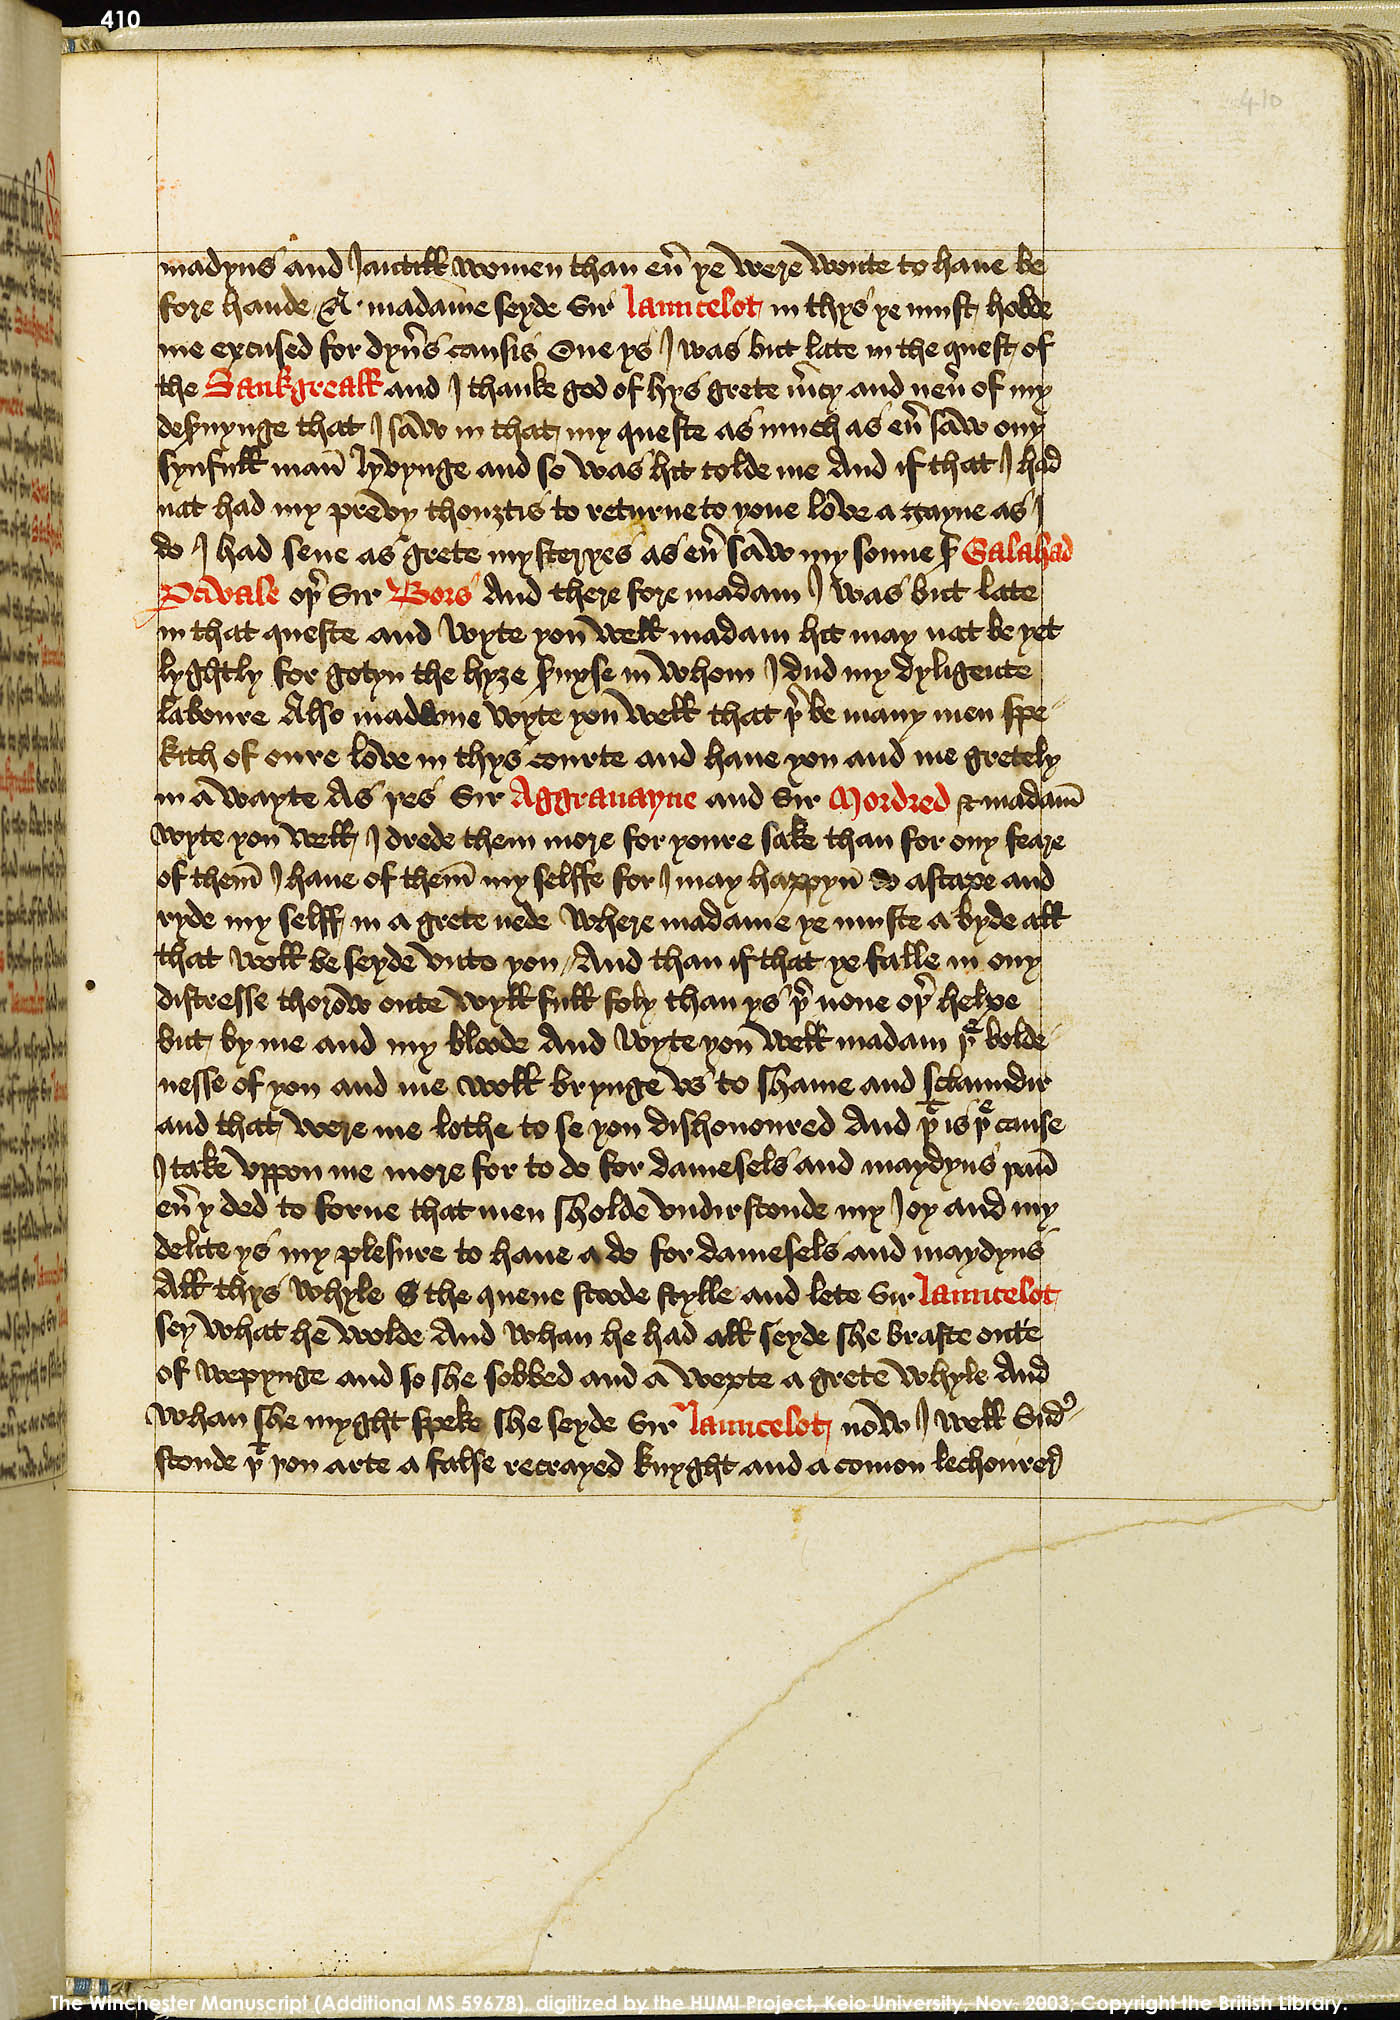 410
410
madyns and Jantill women than eu̾ ye were wonte to haue be
fore hande / A · madame seyde Sir Launcelot in thys ye must holde
me excused for dyu̾s causis One ys J was but late in the quest of
the Sankgreall and J thanke god of hys grete m̾cy and neu̾ of my
deseruynge that J saw in that my queste as much as eu̾ saw ony
synfull man̄ lyvynge and so was hit tolde me And if that J had
nat had my prevy thouȝtis to returne to youe love a gayne as J
do J had sene as grete mysteryes as eu̾ saw my sonne sir Galahad
P̲civale oþ̾ Sir Bors And there fore madam J was but late
in that queste and wyte you well madam hit may nat be yet
lyghtly for gotyn the hyȝe s̾uyse in whom J dud my dyligente
laboure Also madame wyte you well that þ̾ be many men spe
kith of oure love in thys courte and haue you and me gretely
in a wayte As þes Sir Aggrauayne and Sir Mordred & madam̄
wyte you well J drede them more for youre sake than for ony feare
of them̄ J haue of them̄ my selffe for J may happyn̄ to ascape and
ryde my selff in a grete nede where madame ye muste a byde all
that woll be seyde vnto you / And than if that ye falle in ony
distresse thorow oute wyllfull foly than ys þ̾ none oþ̾ helpe
but by me and my bloode And wyte you well madam þͤ bolde
nesse of you and me woll brynge vs to shame and sclaundir
and that were me lothe to se you dishonoured And þᵗ is þͤ cause
J take vppon me more for to do for damesels and maydyns þan̄
eu̾ y ded to forne that men sholde vndirstonde my Joy and my
delite ys my plesure to haue a do for damesels and maydyns
All thys whyle the quene stoode stylle and lete Sir Launcelot
sey what he wolde And whan he had all seyde she braste oute
of wepynge and so she sobbed and a wepte a grete whyle And
whan she myght speke she seyde Sir Launcelot now J well vnd̾
stonde þᵗ þou arte a false recrayed knyght and a comon lechourer
The Winchester Manuscript (Additional MS 59678), digitized by the HUMI Project, Keio University, Nov. 2003; Copyright the British Library.